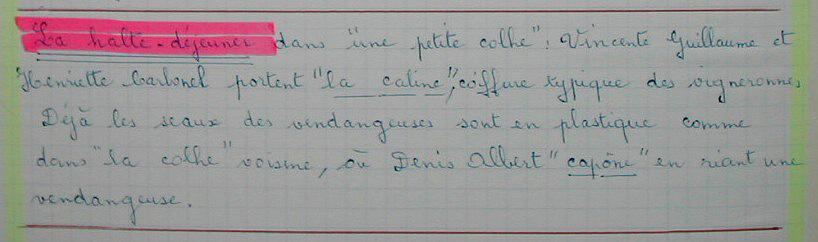 La halte-déjeuner dans "une petite colhe": Vincente Guillaume et
Henriette Carbonel portent "la caline", coiffure typique des vigneronnes
Déjà les seaux des vendangeuses sont en plastique comme
dans "la colhe" voisine, où Denis Albert "capone" en riant une
vendangeuse.